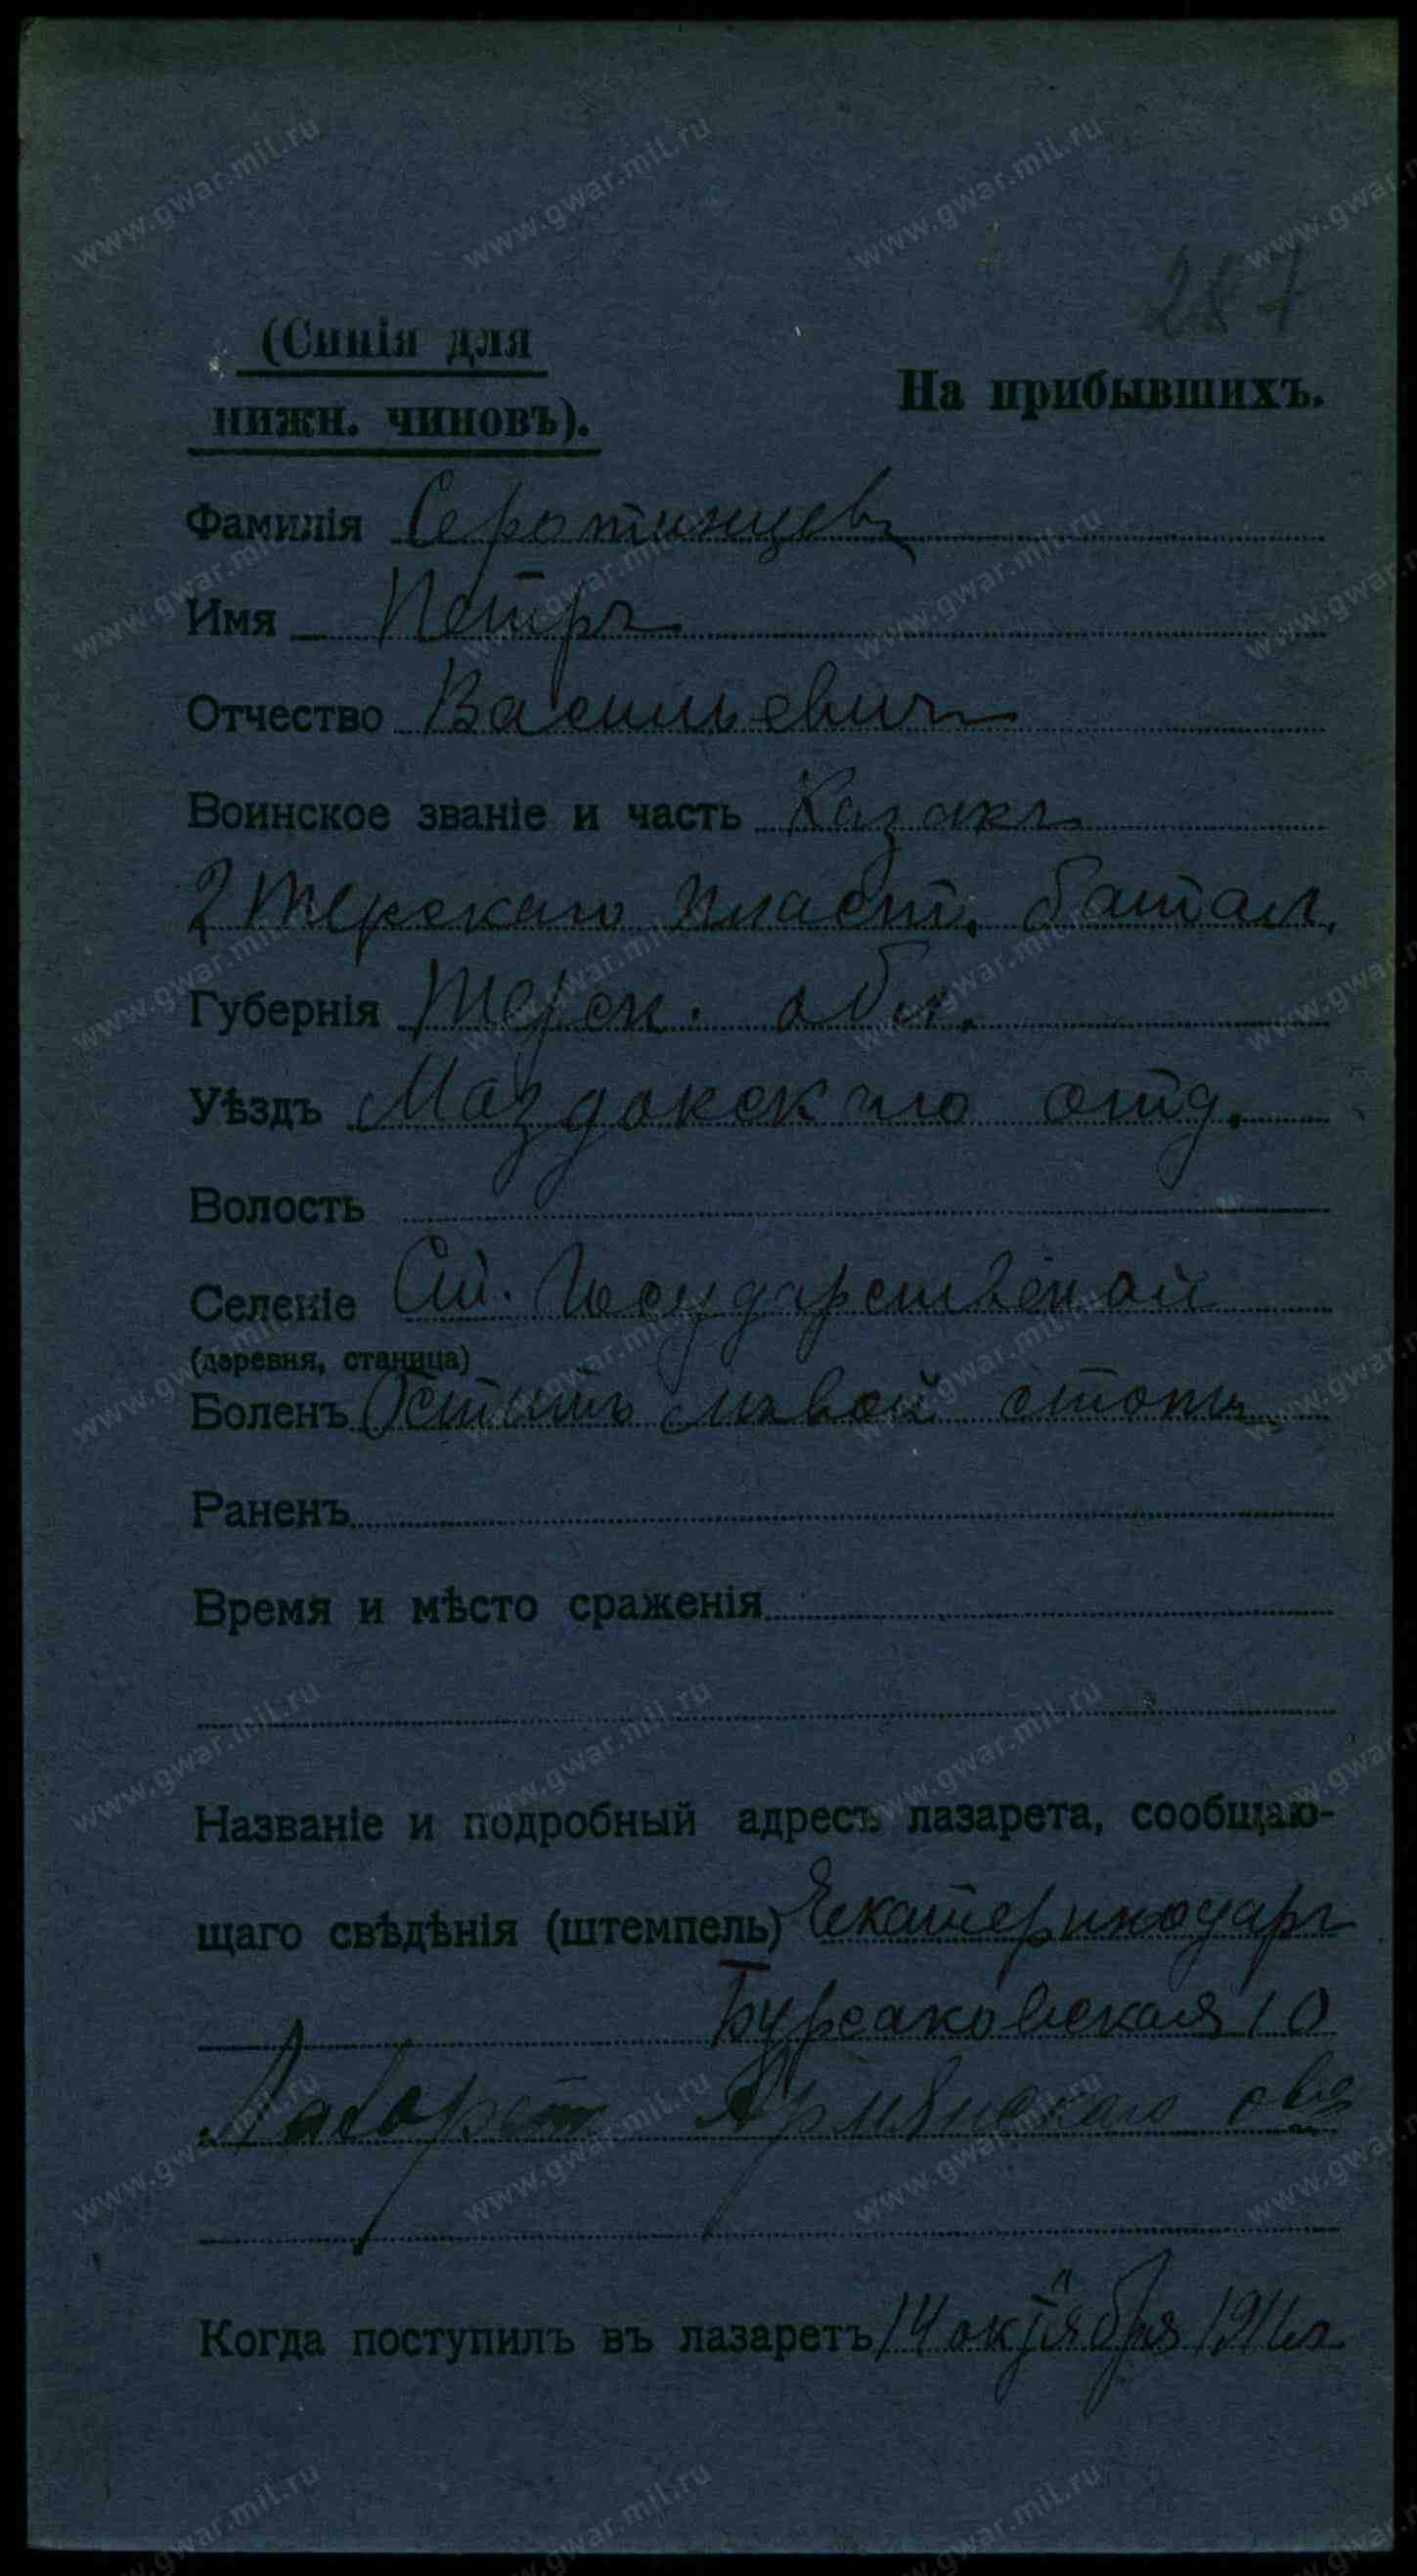 287
(Синія для
нижн. чиновъ).
На прибывшихъ.
Фамилія Серотинцевъ
Имя Петръ
Отчество Васильевичъ
Воинское званіе и часть Казакъ
2 Терскаго пласт. батал.
Губернія Терск. обл.
Уѣздъ Маздокскаго отд.
Волость
Селеніе Ст. Государственой
(деревня, станица)
Боленъ Оститъ лѣвой стопы
Раненъ
Время и мѣсто сраженія
Названіе и подробный адресъ лазарета, сообщаю-
щаго свѣдѣнія (штемпель) Екатеринодаръ
Бурсаковская 10
Лазаретъ Армянскаго
Когда поступилъ въ лазаретъ 14 октября 1916г.